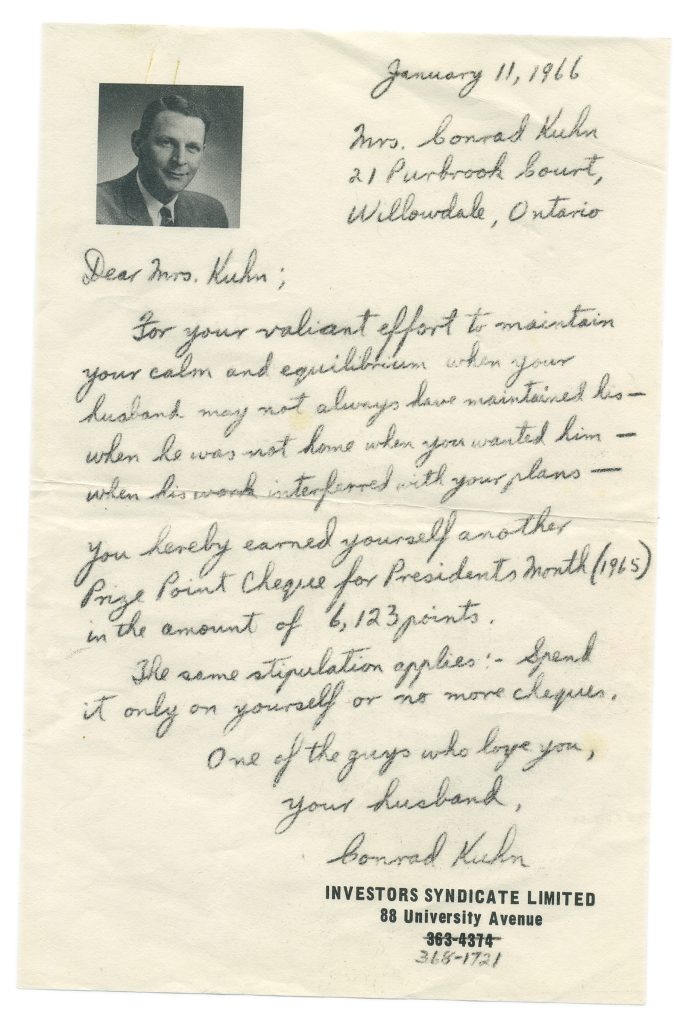 January 11, 1966
Mrs. Conrad Kuhn
21 Purbrook Court,
Willowdale, Ontario
Dear Mrs. Kuhn;
For your valiant effort to maintain
your calm and equilibrium when your
husband may not always have maintained his—
when he was not home when you wanted him —
when his work interferred with your plans —
you hereby earned yourself another
Prize Point Cheque for Presidents Month (1965)
in the amount of 6,123 points.
The same stipulation applies:- Spend
it only on yourself or no more cheques.
One of the guys who love you,
your husband,
Conrad Kuhn
INVESTORS SYNDICATE LIMITED
88 University Avenue
363-4374
368-1721